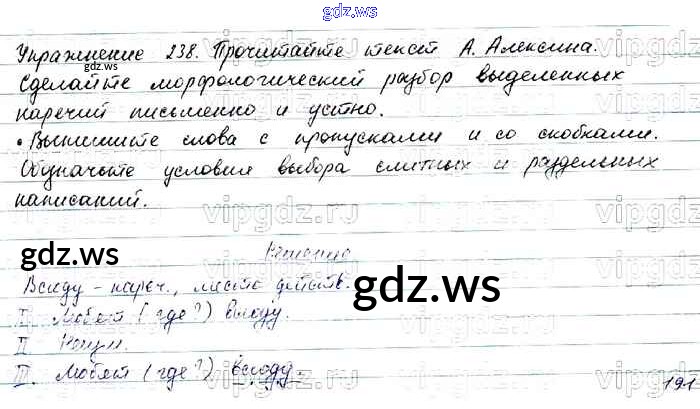 gdz.ws
Упражнение 238. Прочитайте текст А. Алексина.
gdz.ws
Сделайте морфологический разбор выделенных
наречий письменно и устно.
• Выпишите слова с пропусками и со скобками.
Обозначьте условия выбора слитных и раздельных
написаний.
vipgdz.ru
Решение
gdz.ws
Всюду - нареч., место действ.
gdz.ws
I. Любят (где?) всюду.
II Неизм.
III. Любят (где?) всюду.
191